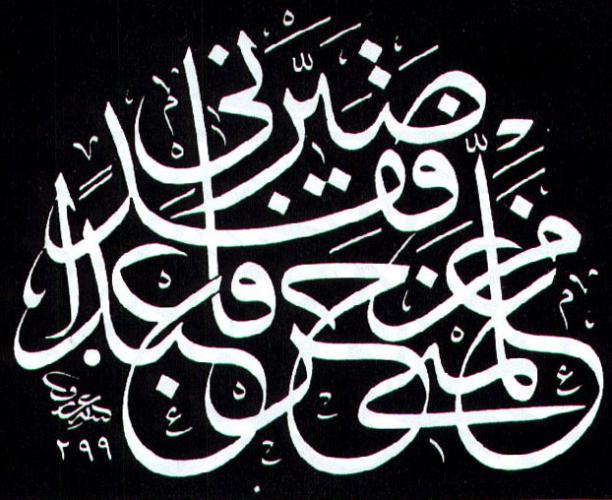 من علّمني حرفا فقد صيّرني عبدا
٢٩٩